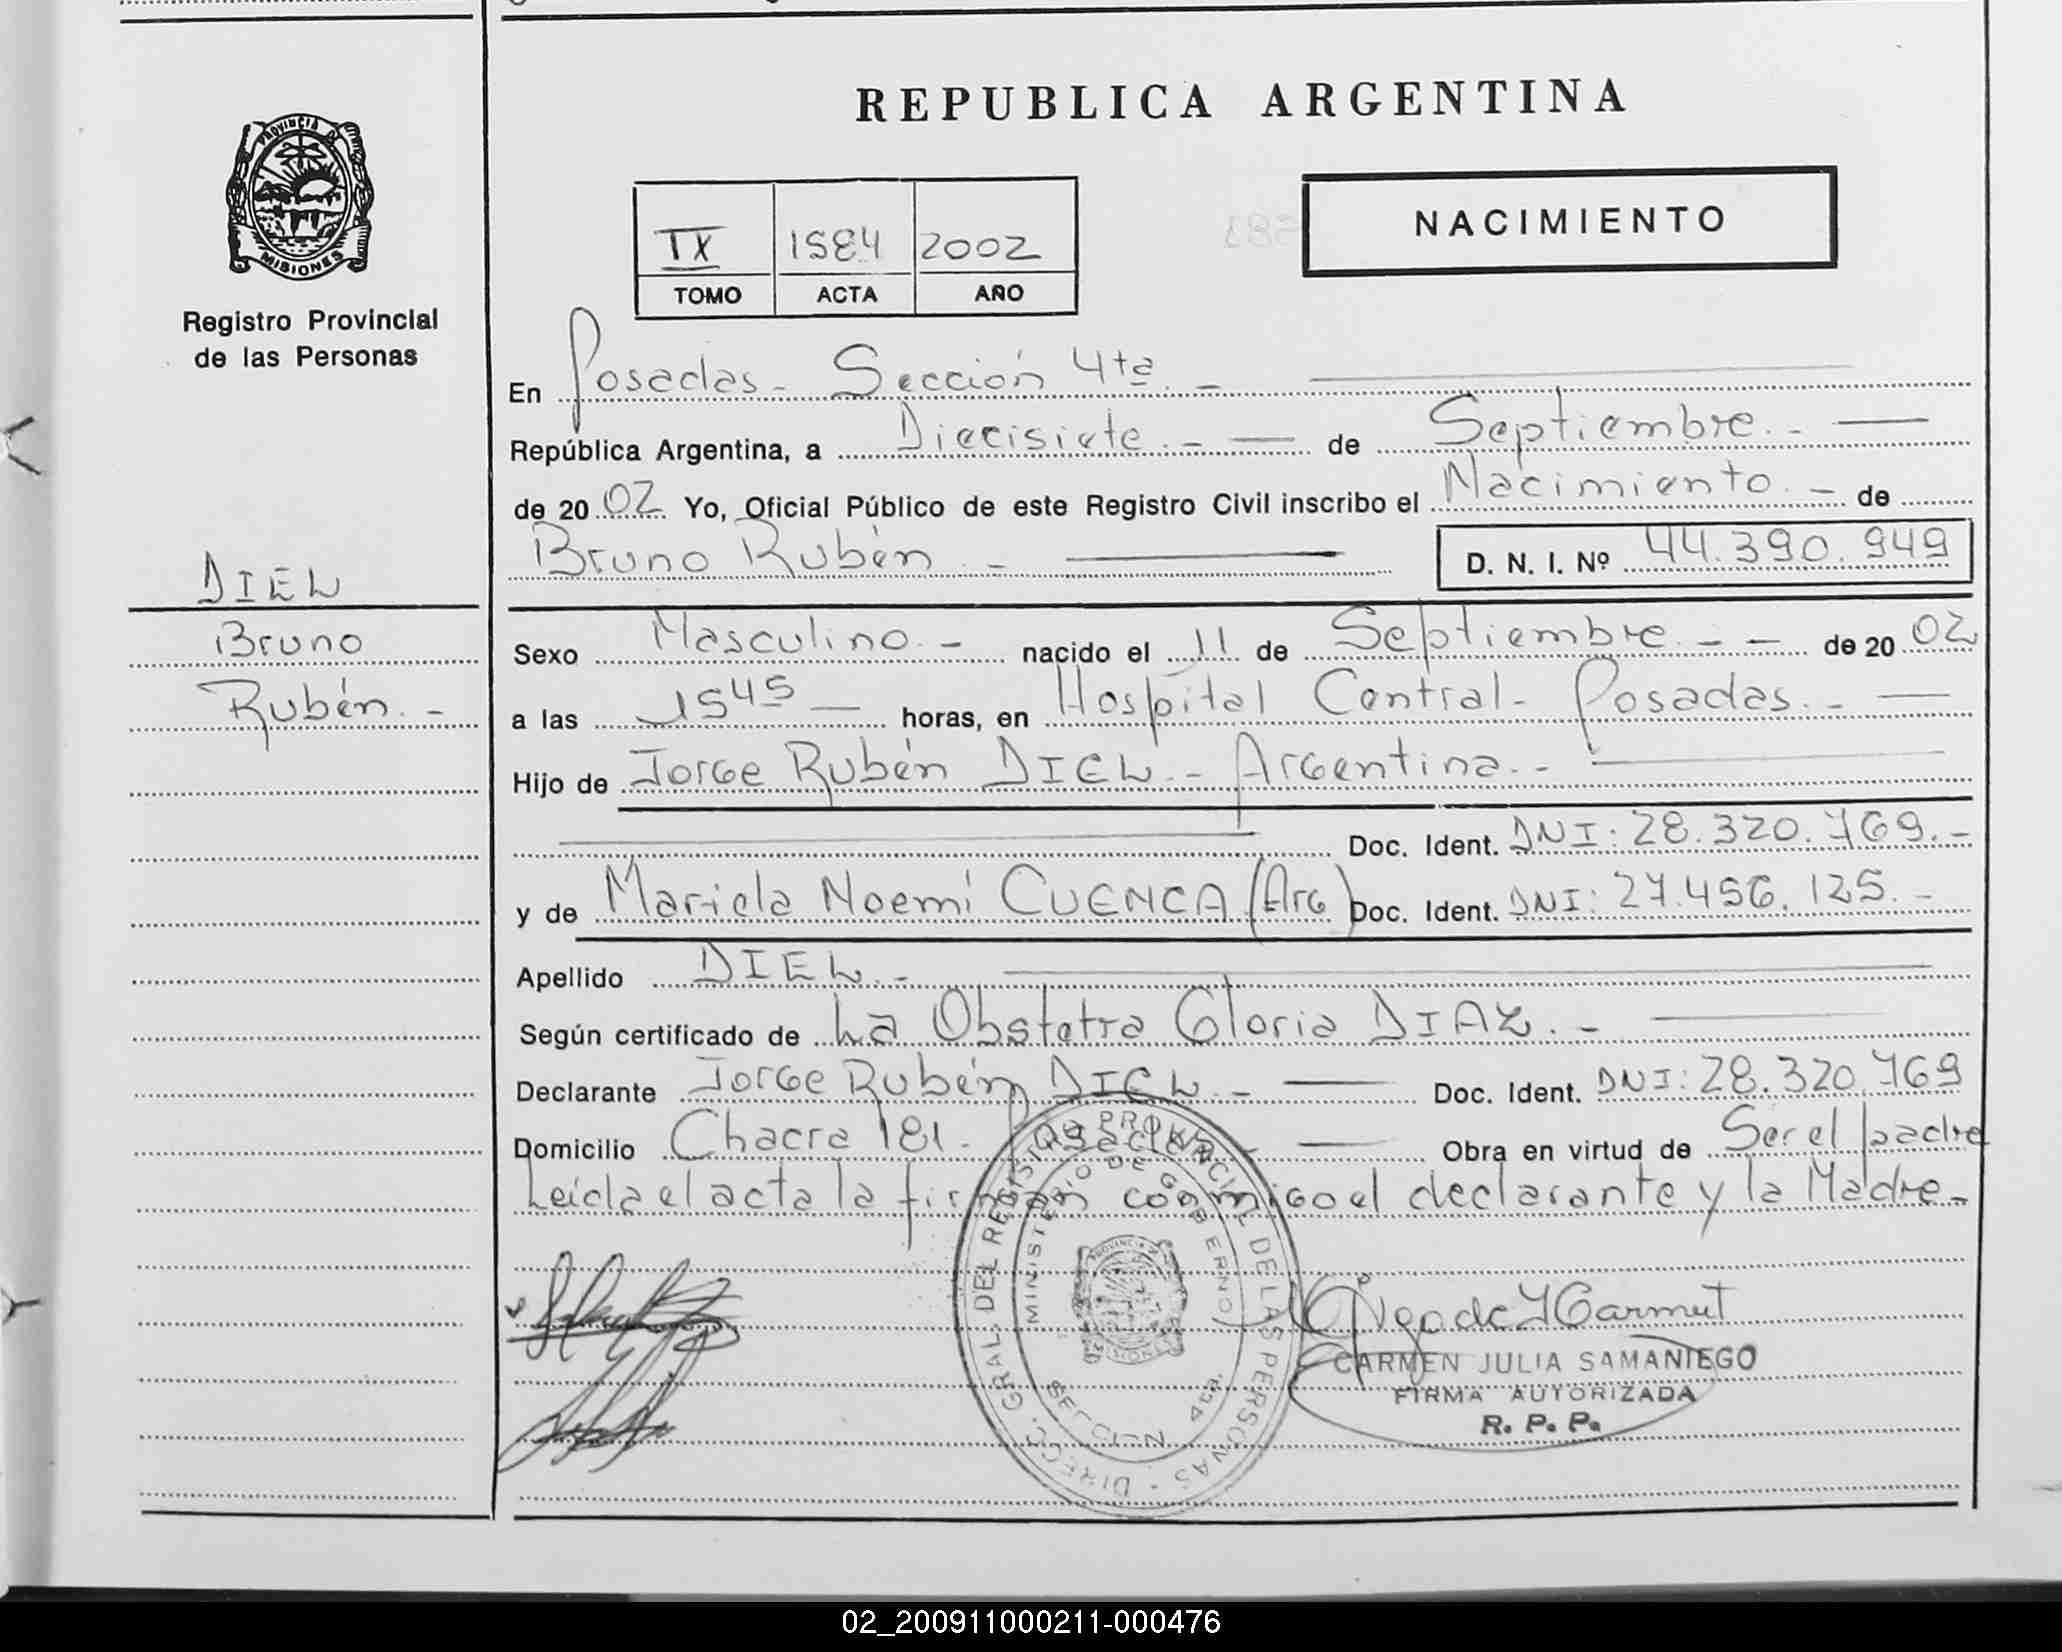 REPUBLICA ARGENTINA
PROVINCIA DE
MISIONES
Registro Provincial
de las Personas
NACIMIENTO
IX 1584 2002
TOMO ACTA AÑO
En Posadas - Sección 4ta. -
República Argentina, a Diecisiete. - de Septiembre. -
de 2002 Yo, Oficial Público de este Registro Civil inscribo el Nacimiento. - de
Bruno Rubén - D. N. I. Nº 44.390.949
DIEL
Bruno
Rubén. -
Sexo Masculino. - nacido el 11 de Septiembre. - - de 2002
a las 15 45 horas, en Hospital Central - Posadas. -
Hijo de Jorge Rubén DIEL. - Argentina. -
Doc. Ident. DNI: 28.320.769. -
y de Mariela Noemí CUENCA (Arg) Doc. Ident. DNI: 27.456.125. -
Apellido DIEL. -
Según certificado de La Obstetra Gloria DIAZ. -
Declarante Jorge Rubén DIEL. - Doc. Ident. DNI: 28.320.769
Domicilio Chacra 181. Posadas - Obra en virtud de Ser el padre
Leída el acta la firman conmigo el declarante y la Madre. -
DIRECC. GRAL. DEL REGISTRO PROVINCIAL DE LAS PERSONAS -
MINISTERIO DE GOBIERNO
PROVINCIA DE
MISIONES
SECCION 4ta.
CARMEN JULIA SAMANIEGO
FIRMA AUTORIZADA
R. P. P.
02_200911000211-000476